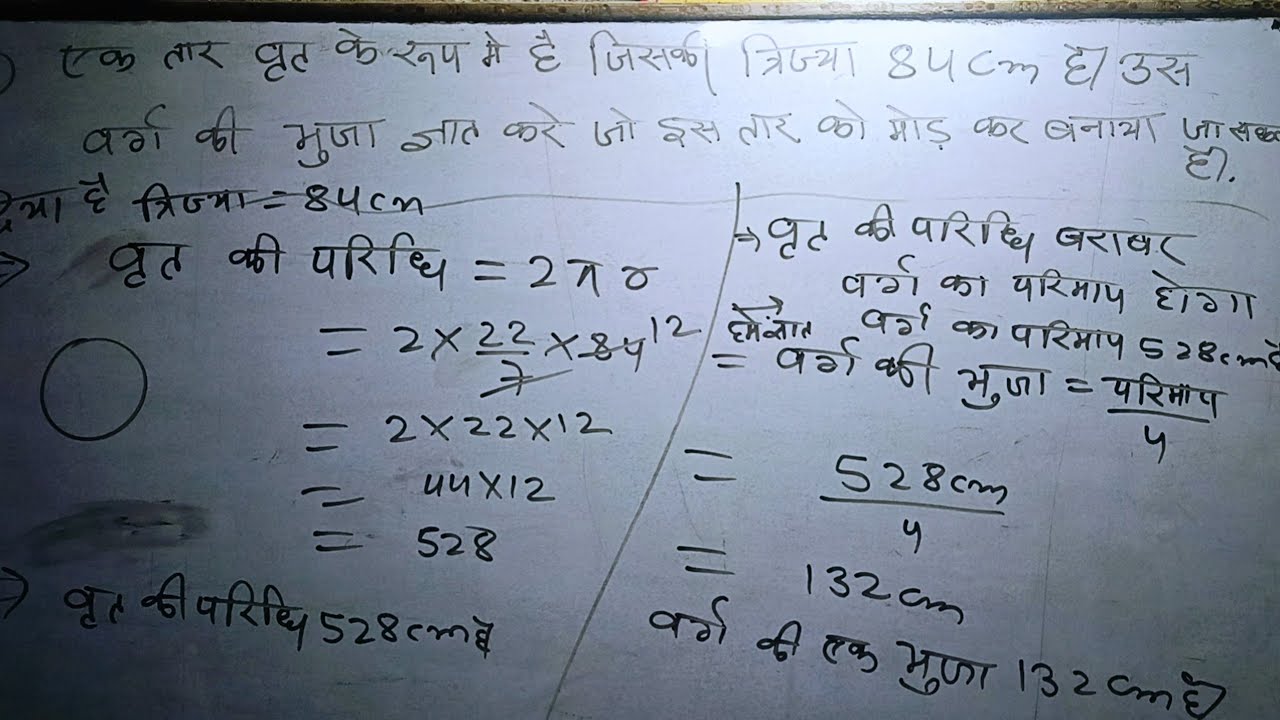 एक तार वृत के रूप मे है जिसकी त्रिज्या 84cm है। उस
वर्ग की भुजा ज्ञात करे जो इस तार को मोड़ कर बनाया जा सकता
है।.
दिया है त्रिज्या = 84cm
⇒ वृत की परिधि = 2πr
= 2 × 22/7 × 84 12
= 2×22×12
= 44×12
= 528
⇒ वृत की परिधि 528cm है
⇒ वृत की परिधि बराबर
वर्ग का परिमाप होगा
हमें ज्ञात वर्ग का परिमाप 528cm है
= वर्ग की भुजा = परिमाप/4
= 528cm/4
= 132cm
वर्ग की एक भुजा 132cm है।